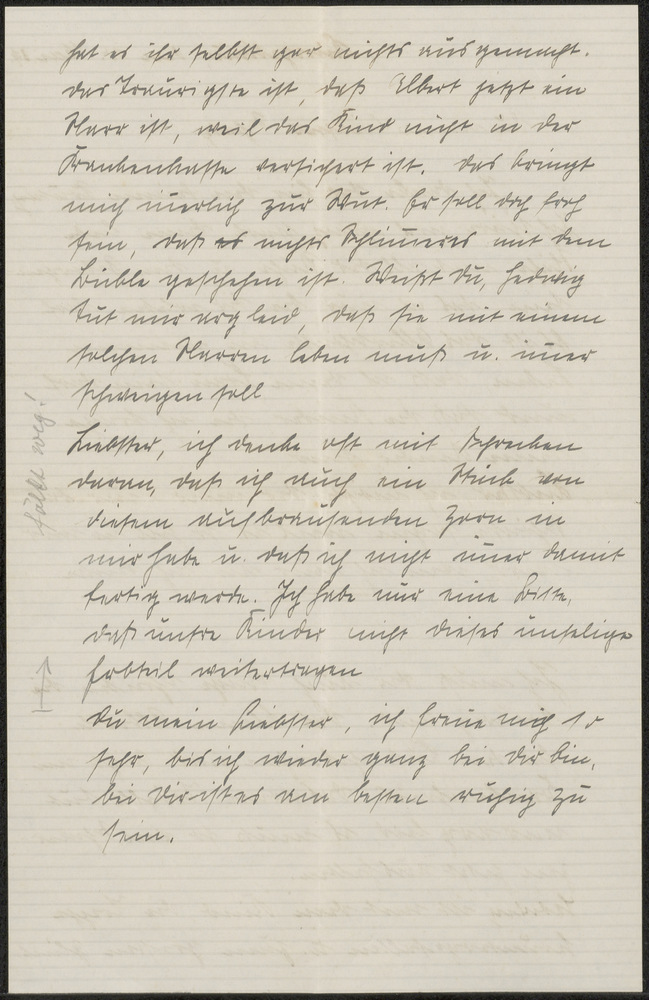 hat es ihr selbst gar nichts ausgemacht.
Das Traurigste ist, daß Albert jetzt ein
Narr ist, weil das Kind nicht in der
Krankenkasse versichert ist. Das bringt
mich innerlich zur Wut. Er soll doch froh
sein, daß es nichts Schlimeres mit dem
Büble geschehen ist. Weißt Du, Hedwig
tut mir arg leid, daß sie mit einem
solchen Narren leben muß u. imer
schweigen soll
Liebster, ich denke oft mit Schrecken
daran, daß ich auch ein Stück von
diesem aufbrausenden Zorn in
mir habe u. daß ich nicht imer damit
fertig werde. Ich habe nur eine Bitte,
daß unsre Kinder nicht dieses unselige
Erbteil weitertragen
Du mein Liebster, ich freue mich so
sehr, bis ich wieder ganz bei Dir bin,
bei Dir ist es am besten ruhig zu
sein.
fällt weg!